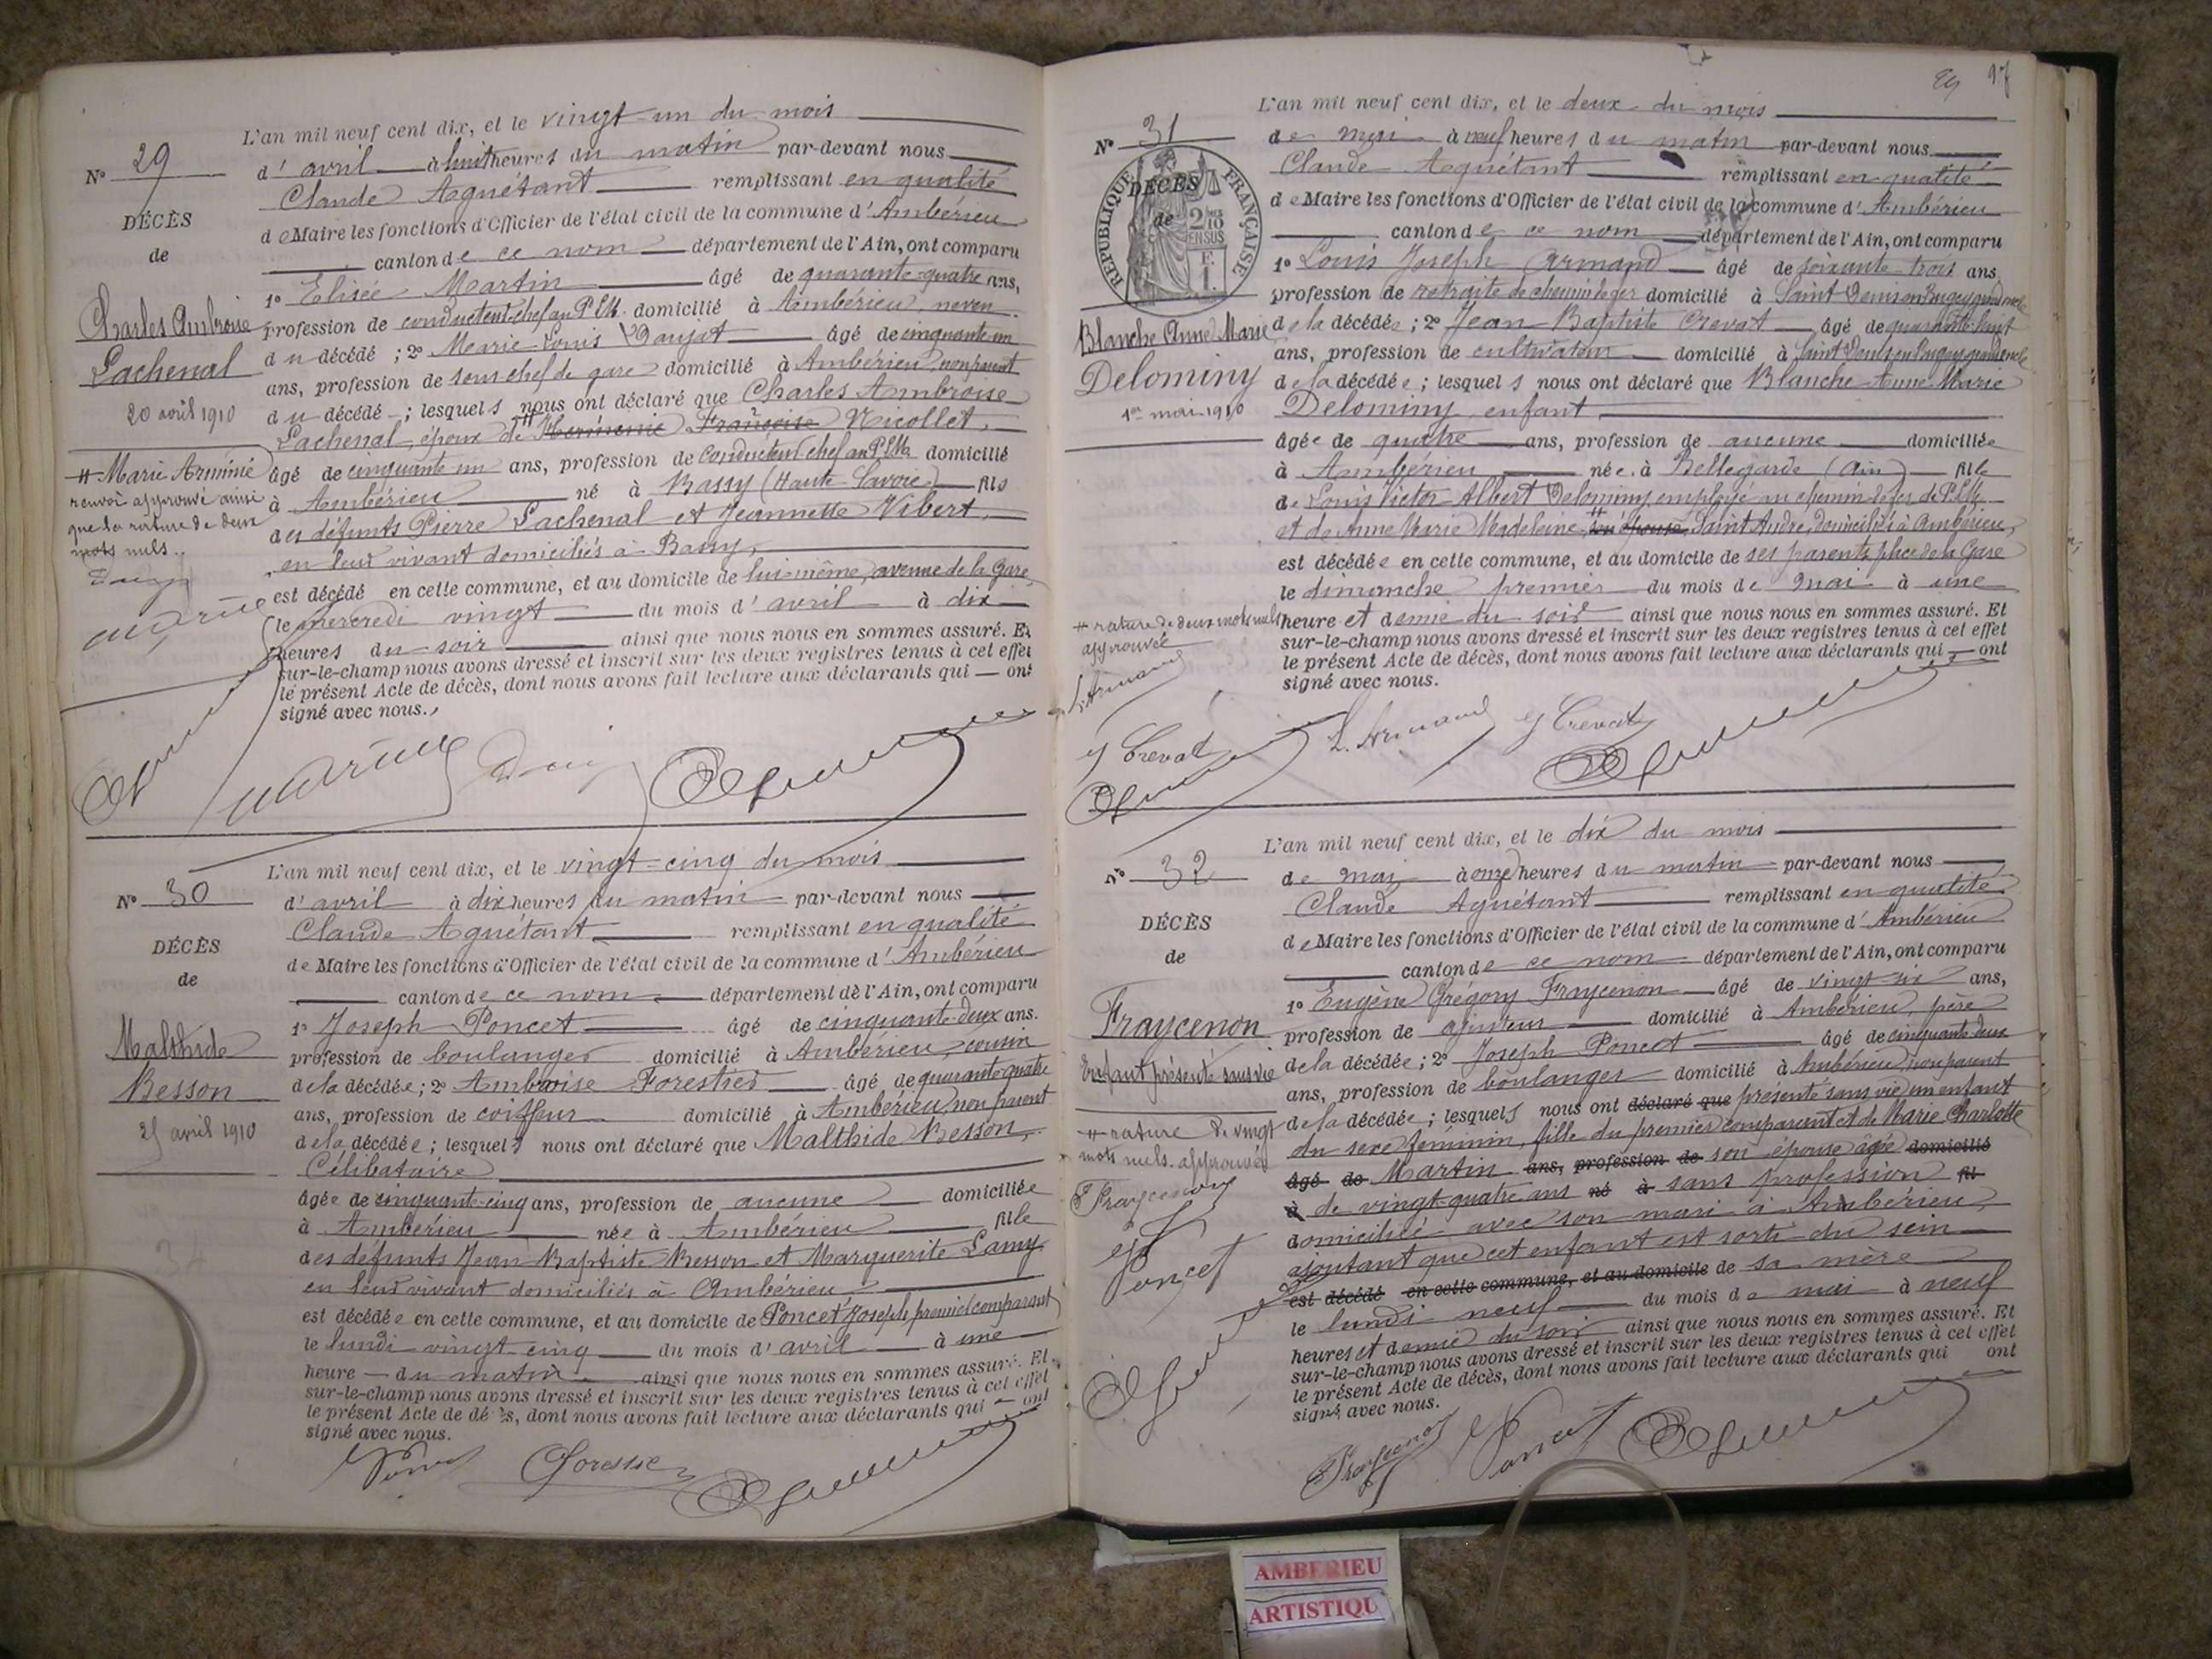 L'an mil neuf cent dix, et le vingt-un du mois
Nº 29
d'avril à huit heures du matin par-devant nous
Claude Aguétant remplissant en qualité
DÉCÈS
de Maire les fonctions d'Officier de l'état civil de la commune d'Ambérieu
de
canton de ce nom département de l'Ain, ont comparu
1º Elisée Martin âgé de quarante-quatre ans,
Charles Ambroise
profession de conducteur chef au PLM. domicilié à Ambérieu, neveu
du décédé ; 2º Marie-Louis Daujat âgé de cinquante-un
Lachenal
ans, profession de sous chef de gare domicilié à Ambérieu, non parent
20 avril 1910
du décédé ; lesquels nous ont déclaré que Charles Ambroise
Lachenal, époux de # Herminie Françoise Nicollet,
# Marie Arminie
âgé de cinquante un ans, profession de Conducteur chef au PLM. domicilié
renvoi approuvé ainsi
à Ambérieu né à Bassy (Haute-Savoie) fils
que la rature de deux
des défunts Pierre Lachenal et Jeannette Vibert,
mots nuls.
en leur vivant domiciliés à Bassy,
est décédé en cette commune, et au domicile de lui-même, avenue de la Gare,
le mercredi vingt du mois d'avril à dix
heures du soir ainsi que nous nous en sommes assuré. Et
sur-le-champ nous avons dressé et inscrit sur les deux registres tenus à cet effet
le présent Acte de décès, dont nous avons fait lecture aux déclarants qui — ont
signé avec nous.
L'an mil neuf cent dix, et le vingt-cinq du mois
Nº 30
d'avril à dix heures du matin par-devant nous
Claude Aguétant remplissant en qualité
DÉCÈS
de Maire les fonctions d'Officier de l'état civil de la commune d'Ambérieu
de
canton de ce nom département de l'Ain, ont comparu
1º Joseph Poncet âgé de cinquante-deux ans.
Malthide
profession de boulanger domicilié à Ambérieu, cousin
Besson
de la décédée ; 2º Ambroise Forestier âgé de quarante-quatre
ans, profession de coiffeur domicilié à Ambérieu, non parent
25 avril 1910
de la décédée ; lesquels nous ont déclaré que Malthide Besson,
Célibataire
âgée de cinquante-cinq ans, profession de aucune domiciliée
à Ambérieu née à Ambérieu fille
des défunts Jean Baptiste Besson et Marguerite Lamy
en leur vivant domiciliés à Ambérieu
est décédée en cette commune, et au domicile de Poncet Joseph premier comparant
le lundi vingt-cinq du mois d'avril à une
heure — du matin ainsi que nous nous en sommes assuré. Et
sur-le-champ nous avons dressé et inscrit sur les deux registres tenus à cet effet
le présent Acte de décès, dont nous avons fait lecture aux déclarants qui — ont
signé avec nous.
29 17
L'an mil neuf cent dix, et le deux du mois
Nº 31
de mai à neuf heures du matin par-devant nous
Claude Aguétant remplissant en qualité
RÉPUBLIQUE FRANÇAISE
DÉCÈS
de
2/10 EN SUS
F. 1.
de Maire les fonctions d'Officier de l'état civil de la commune d'Ambérieu
canton de ce nom département de l'Ain, ont comparu
1º Louis Joseph Armand âgé de soixante-trois ans,
profession de retraité de chemin de fer domicilié à Saint Denis en Bugey, grand oncle
Blanche Anne Marie
de la décédée ; 2º Jean Baptiste Crevat âgé de quarante-huit
ans, profession de cultivateur domicilié à Saint Denis en Bugey, grand oncle
Delominy
de la décédée ; lesquels nous ont déclaré que Blanche Anne Marie
1er mai 1910
Delominy, enfant
âgée de quatre ans, profession de aucune domiciliée
à Ambérieu née à Bellegarde (Ain) fille
de Louis Victor Albert Delominy, employé au chemin de fer de PLM.
et de Anne Marie Madeleine # son épouse Saint André, domiciliés à Ambérieu,
est décédée en cette commune, et au domicile de ses parents, place de la Gare
le dimanche premier du mois de mai à une
# rature de deux mots nuls
heure et demie du soir ainsi que nous nous en sommes assuré. Et
approuvée
sur-le-champ nous avons dressé et inscrit sur les deux registres tenus à cet effet
le présent Acte de décès, dont nous avons fait lecture aux déclarants qui — ont
L. Armand
signé avec nous.
J Crevat
L. Armand J Crevat
L'an mil neuf cent dix, et le dix du mois
Nº 32
de mai à onze heures du matin par-devant nous
Claude Aguétant remplissant en qualité
DÉCÈS
de Maire les fonctions d'Officier de l'état civil de la commune d'Ambérieu
de
canton de ce nom département de l'Ain, ont comparu
1º Eugène Grégory Fraycenon âgé de vingt-six ans,
Fraycenon
profession de ajusteur domicilié à Ambérieu, père
de la décédée ; 2º Joseph Poncet âgé de cinquante deux
Enfant présenté sans vie
ans, profession de boulanger domicilié à Ambérieu, non parent
de la décédée ; lesquels nous ont déclaré que présenté sans vie un enfant
# rature de vingt
du sexe féminin, fille du premier comparant et de Marie Charlotte
mots nuls approuvée
âgé de Martin ans, profession de son épouse âgée domicilié
à de vingt-quatre ans né à sans profession fil
domiciliée avec son mari à Ambérieu,
ajoutant que cet enfant est sorti du sein
est décédé en cette commune, et au domicile de sa mère
le lundi neuf du mois de mai à neuf
heures et demie du soir ainsi que nous nous en sommes assuré. Et
sur-le-champ nous avons dressé et inscrit sur les deux registres tenus à cet effet
le présent Acte de décès, dont nous avons fait lecture aux déclarants qui ont
signé avec nous.
Fraycenon
Poncet
Fraycenon Poncet
AMBERIEU
ARTISTIQU